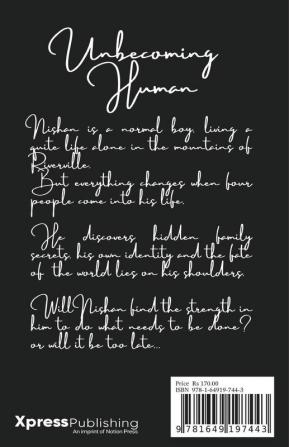 Unbecoming
Human
Nishan is a normal boy, living a
quite life alone in the mountains of
Riverville.
But everything changes when four
people come into his life.
He discovers hidden family
secrets, his own identity and the fate
of the world lies on his shoulders.
Will Nishan find the strength in
him to do what needs to be done?
or will it be too late...
Price Rs 170.00
ISBN 978-1-64919-744-3
9 781649 197443
XpressPublishing
An imprint of Notion Press